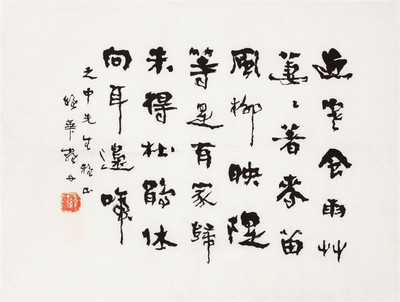 近寒食雨艸
萋〻著麥苗
風柳映隄
等是有家歸
未得杜鵑休
向耳邊啼
之中先生雅正
華